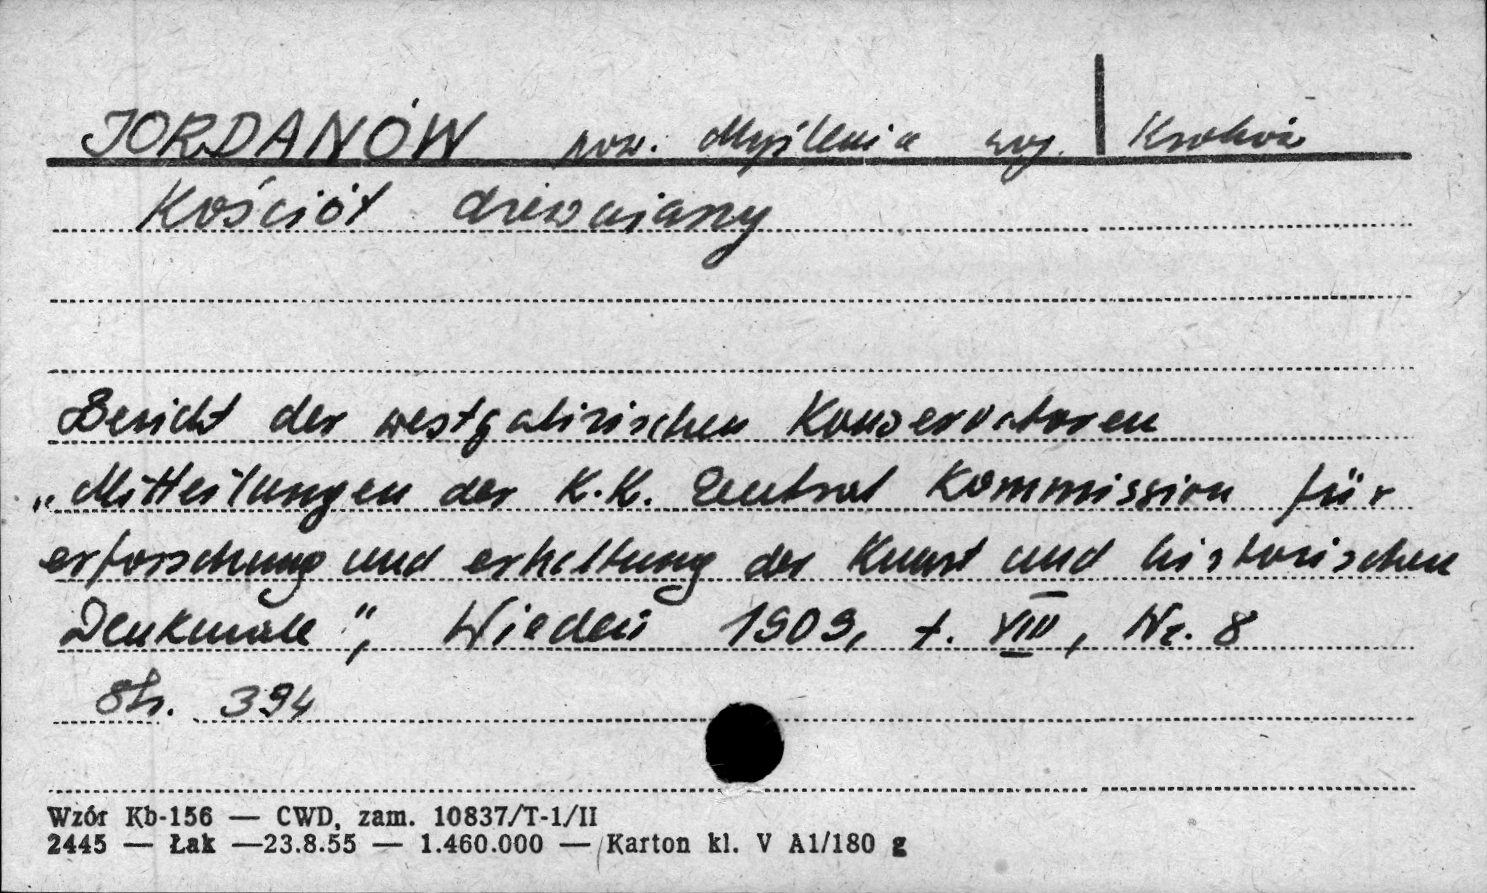 JORDANÓW pow. Myślenice woj. Kraków
Kościół drewniany
Bericht der westgalizischen Konservatoren
„Mitteilungen der K.K. Zentral Kommission für
erforschung und erhaltung der Kunst und historischen
Denkmale", Wiedeń 1909, t. VIII, Nr. 8
Str. 394
Wzór Kb-156 — CWD, zam. 10837/T-1/II
2445 — Łak —23.8.55 — 1.460.000 — Karton kl. V A1/180 g